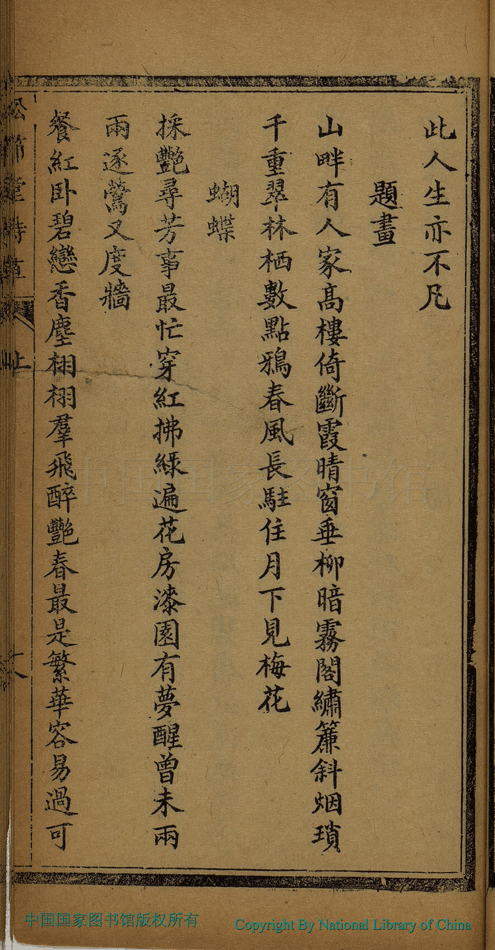 此人生亦不凡
題畫
山畔有人家高樓倚斷霞晴窗垂柳暗霧閣繡簾斜烟瑣
千重翠林栖數點鴉春風長駐住月下見梅花
蝴蝶
採艷尋芳事最忙穿紅拂綠遍花房漆園有夢醒曾未兩
兩逐鶯又度牆
餐紅卧碧戀香塵栩栩羣飛醉艷春最是繁華容易過可
中国国家图书馆版权所有
Copyright By National Library of China